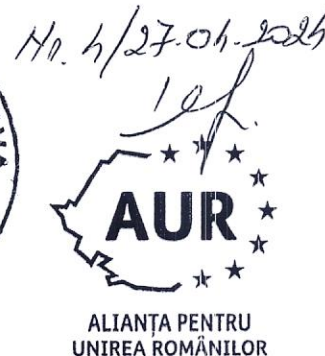 Nr. 4/27.04.2024
AUR
ALIANȚA PENTRU
UNIREA ROMÂNILOR